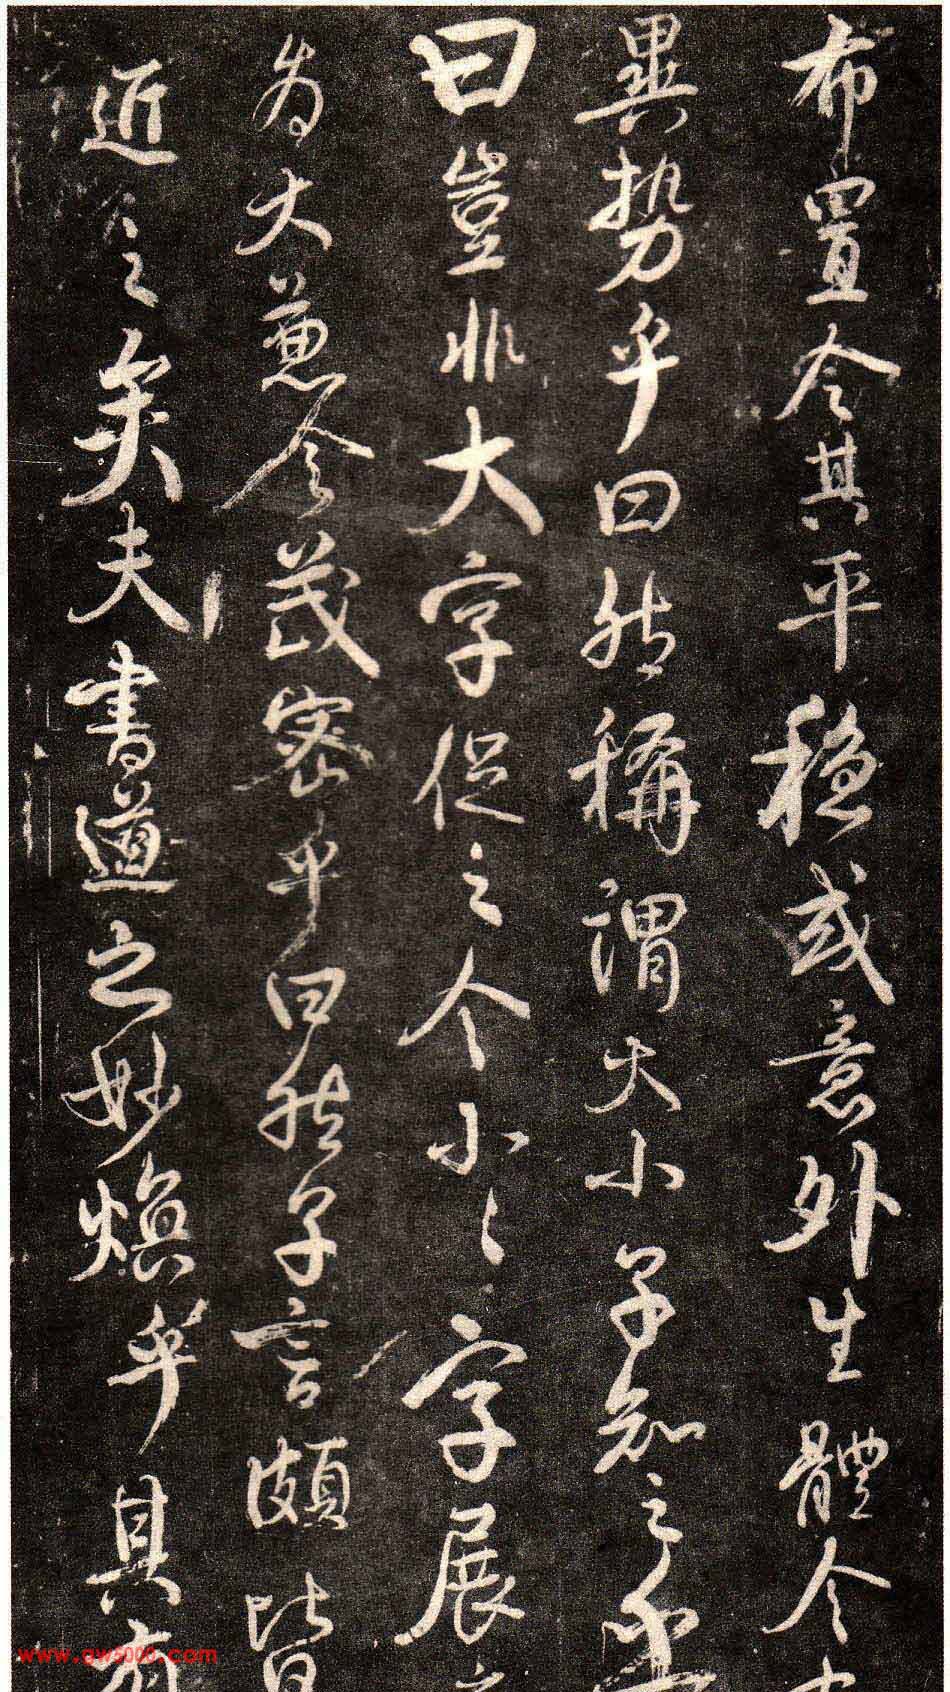 布置令其平穩或意外生體令
異勢乎曰然稱謂大小子知之乎
曰豈非大字促之令小小字展
為大兼令茂密乎曰然子言頗皆
近之矣夫書道之妙煥乎其有
www.gw5000.com